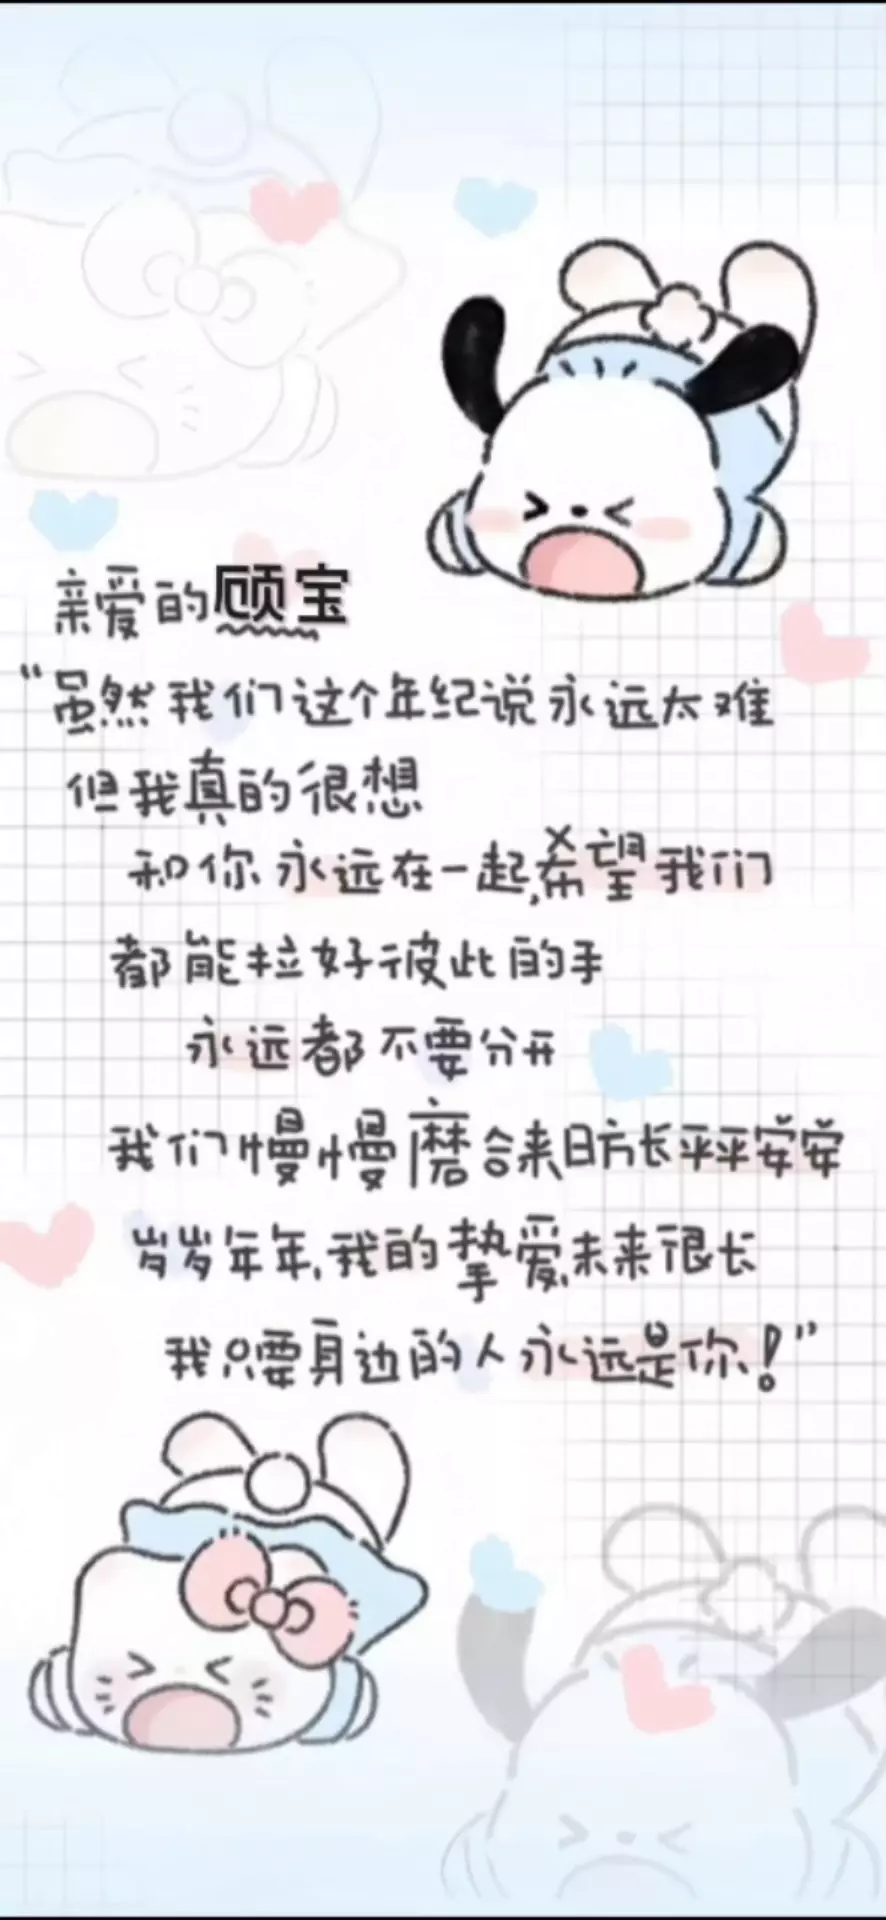 亲爱的顾宝
“虽然我们这个年纪说永远太难
但我真的很想
和你永远在一起,希望我们
都能拉好彼此的手
永远都不要分开
我们慢慢磨合来日方长平平安安
岁岁年年,我的挚爱,未来很长
我只要身边的人永远是你!”